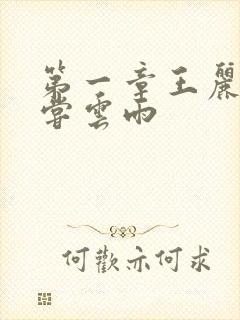 第一章王麗
嘗雲雨
何歡亦何求